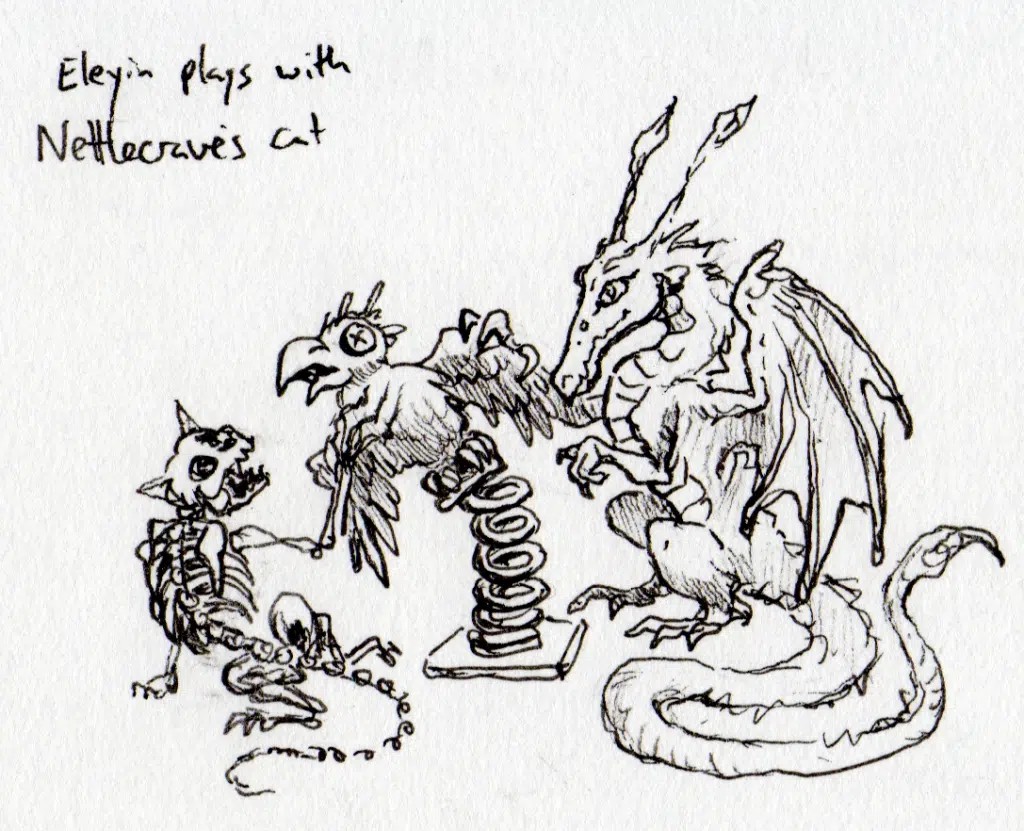 Eleyin plays with
Nettlecrave's cat